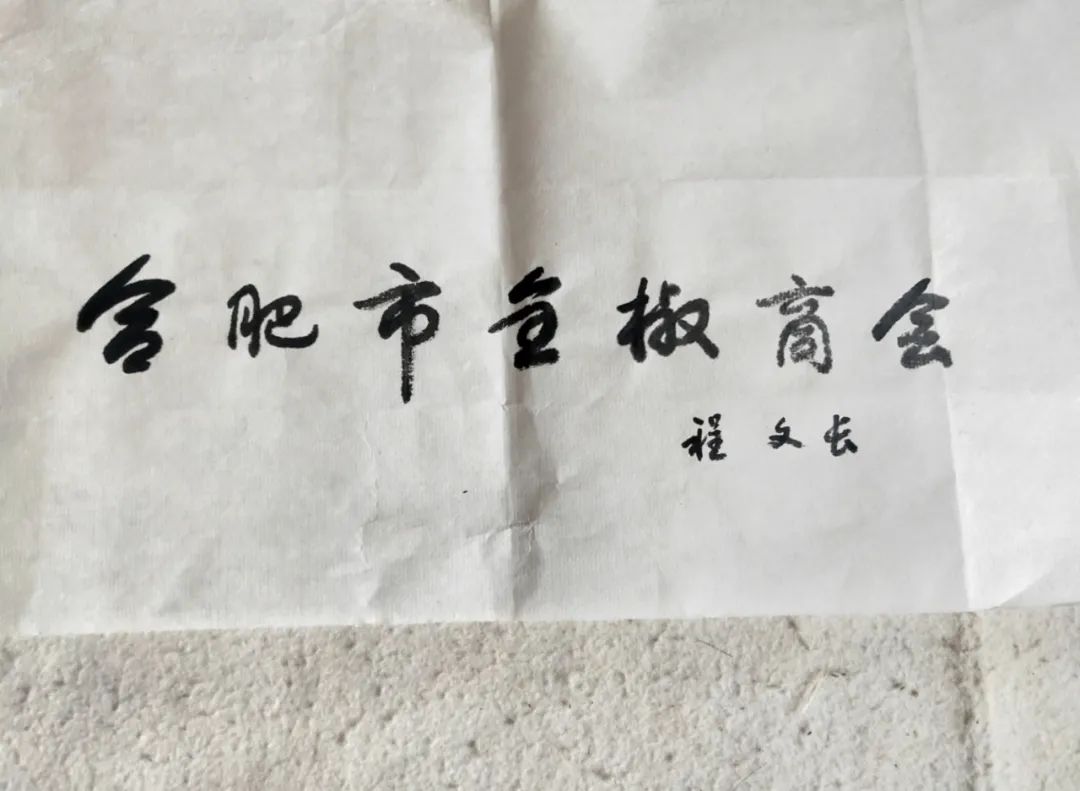 合肥市全椒商会
程文长